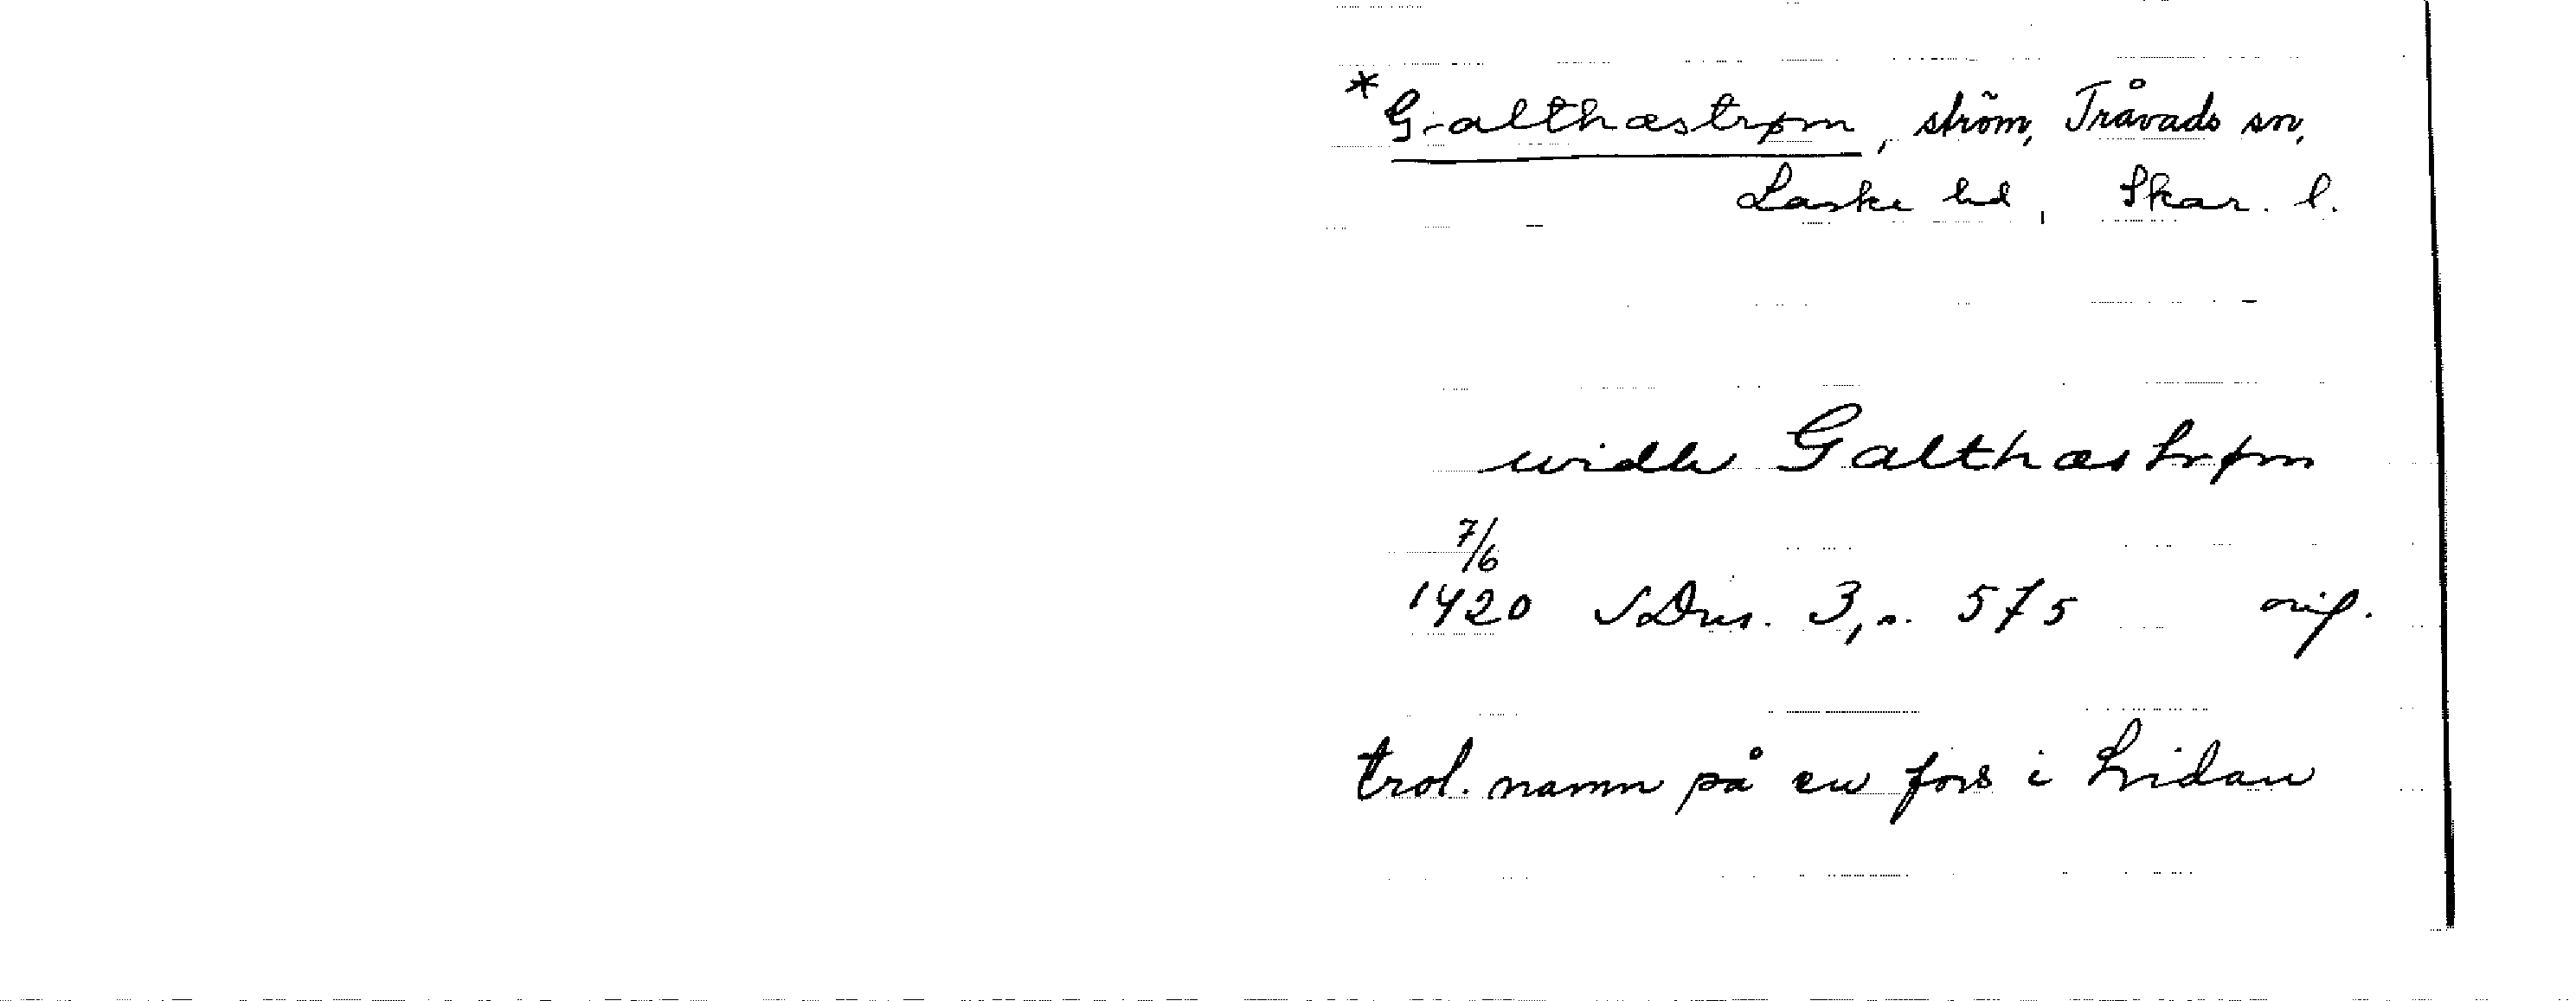 * Galthæstrøm, ström, Tråvads sn,
Laske hd, Skar. l.
widh Galthæstrøm
7/6
1420 SDns. 3, s. 575 orig.
trol. namn på en fors i Lidan